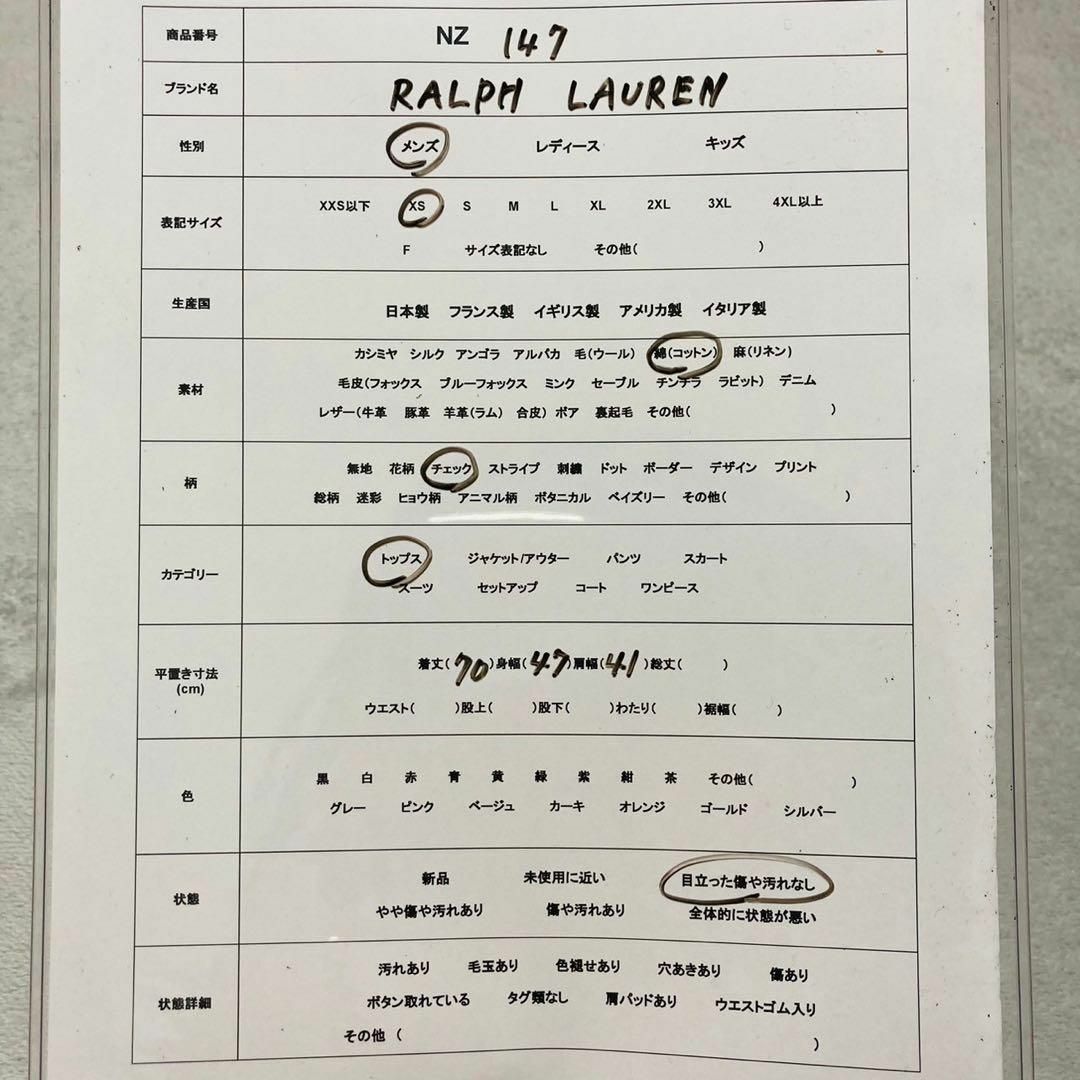 商品番号 NZ 147
ブランド名 RALPH LAUREN
性別 メンズ レディース キッズ
表記サイズ
XXS以下 XS S M L XL 2XL 3XL 4XL以上
F サイズ表記なし その他( )
生産国 日本製 フランス製 イギリス製 アメリカ製 イタリア製
素材
カシミヤ シルク アンゴラ アルパカ 毛(ウール) 綿(コットン) 麻(リネン)
毛皮(フォックス ブルーフォックス ミンク セーブル チンチラ ラビット) デニム
レザー(牛革 豚革 羊革(ラム) 合皮) ボア 裏起毛 その他( )
柄
無地 花柄 チェック ストライプ 刺繍 ドット ボーダー デザイン プリント
総柄 迷彩 ヒョウ柄 アニマル柄 ボタニカル ペイズリー その他( )
カテゴリー
トップス ジャケット/アウター パンツ スカート
スーツ セットアップ コート ワンピース
平置き寸法
(cm)
着丈(70)身幅(47)肩幅(41)総丈( )
ウエスト( )股上( )股下( )わたり( )裾幅( )
色
黒 白 赤 青 黄 緑 紫 紺 茶 その他( )
グレー ピンク ベージュ カーキ オレンジ ゴールド シルバー
状態
新品 未使用に近い 目立った傷や汚れなし
やや傷や汚れあり 傷や汚れあり 全体的に状態が悪い
状態詳細
汚れあり 毛玉あり 色褪せあり 穴あきあり 傷あり
ボタン取れている タグ類なし 肩パッドあり ウエストゴム入り
その他 ( )